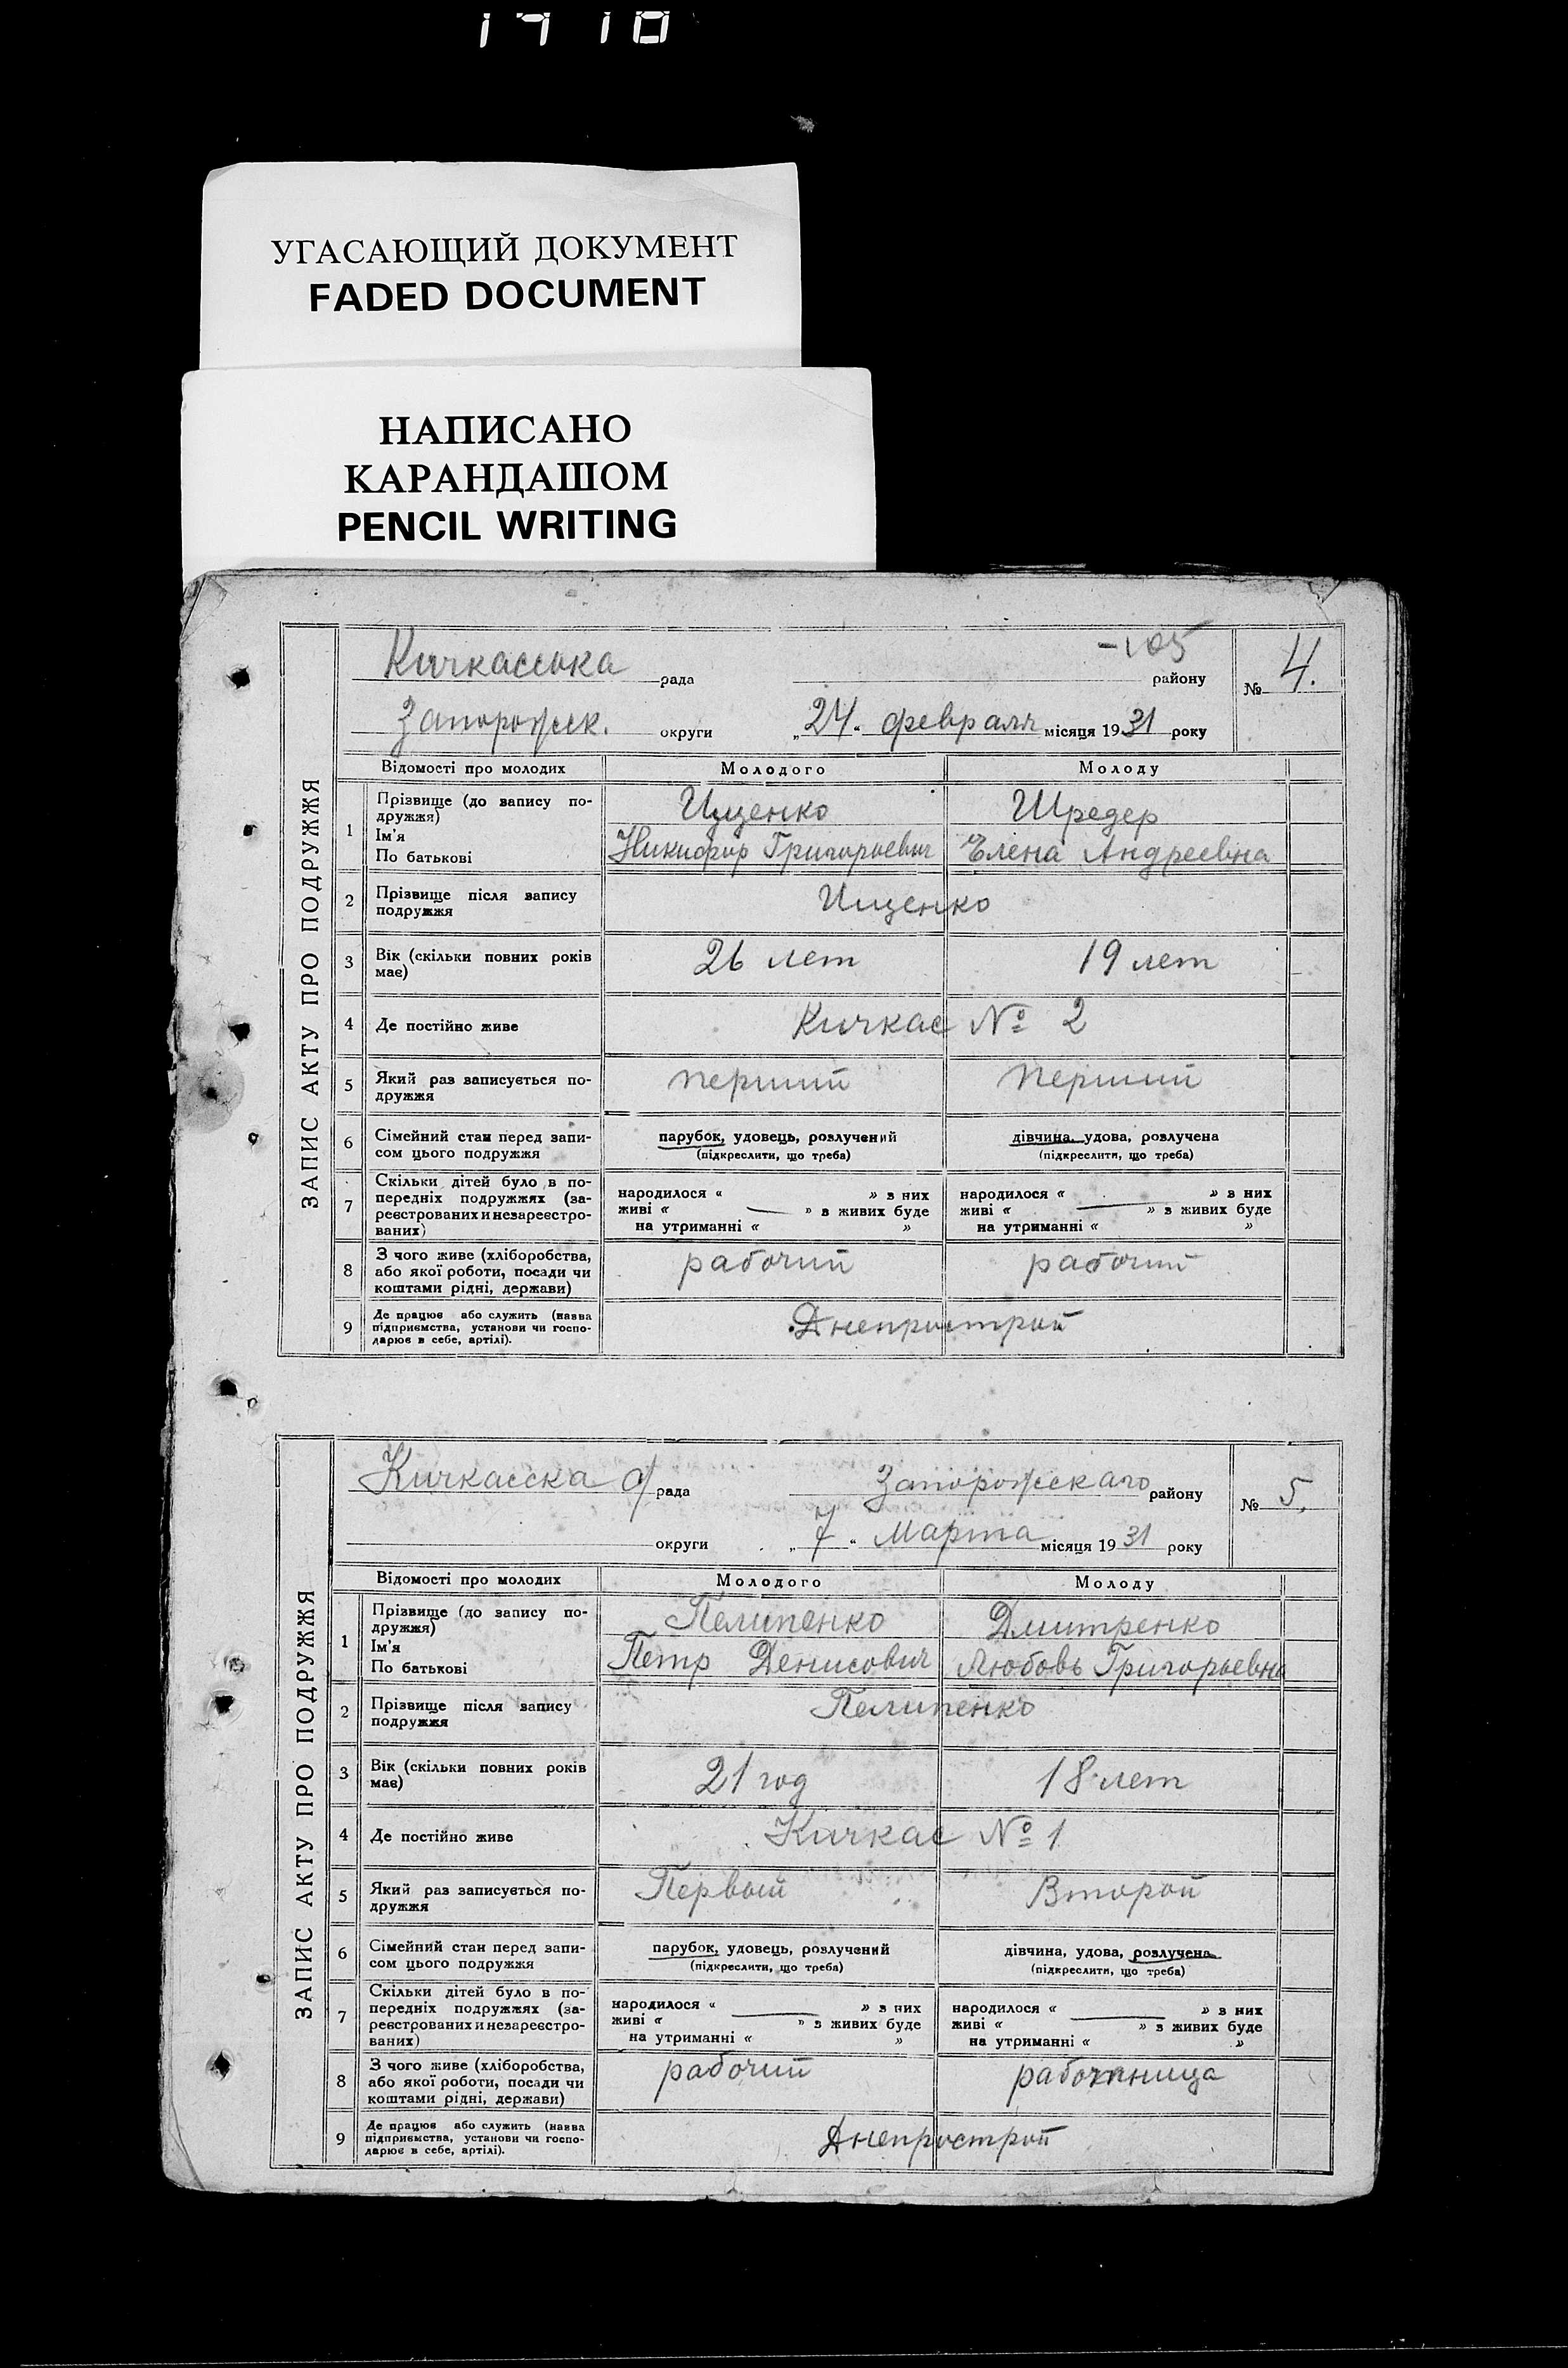 1910
УГАСАЮЩИЙ ДОКУМЕНТ
FADED DOCUMENT
НАПИСАНО
КАРАНДАШОМ
PENCIL WRITING
ЗАПИС АКТУ ПРО ПОДРУЖЖЯ
-105
Кичкаська рада району № 4.
Запорожск. округи „24“ февраля місяця 1931 року
Відомості про молодих Молодого Молоду
1 Прізвище (до запису по-
дружжя) Ищенко Шредер
Ім'я
По батькові Никифор Григорьевич Елена Андреевна
2 Прізвище після запису
подружжя Ищенко
3 Вік (скільки повних років
має) 26 лет 19 лет
4 Де постійно живе Кичкас № 2
5 Який раз записується по-
дружжя перший Перший
6 Сімейний стан перед запи-
сом цього подружжя парубок, удовець, розлучений дівчина, удова, розлучена
(підкреслити, що треба) (підкреслити, що треба)
7 Скільки дітей було в по-
передніх подружжях (за-
реєстрованих и незареєстро-
ваних)
народилося « » в них народилося « » в них
живі « — » в живих буде живі « — » в живих буде
на утриманні « » на утриманні « »
8 З чого живе (хліборобства,
або якої роботи, посади чи
коштами рідні, держави) рабочий рабочий
9 Де працює або служить (назва
підприємства, установи чи госпо-
дарює в себе, артілі). Днепрострой
ЗАПИС АКТУ ПРО ПОДРУЖЖЯ
Кичкасска рада Запорожскаго району № 5.
округи „7“ Марта місяця 1931 року
Відомості про молодих Молодого Молоду
1 Прізвище (до запису по-
дружжя) Пелипенко Дмитренко
Ім'я
По батькові Петр Денисович Любовь Григорьевна
2 Прізвище після запису
подружжя Пелипенко
3 Вік (скільки повних років
має) 21 год 18 лет
4 Де постійно живе Кичкас № 1
5 Який раз записується по-
дружжя Первый Второй
6 Сімейний стан перед запи-
сом цього подружжя парубок, удовець, розлучений дівчина, удова, розлучена
(підкреслити, що треба) (підкреслити, що треба)
7 Скільки дітей було в по-
передніх подружжях (за-
реєстрованих и незареєстро-
ваних)
народилося « » в них народилося « » в них
живі « — » в живих буде живі « — » в живих буде
на утриманні « » на утриманні « »
8 З чого живе (хліборобства,
або якої роботи, посади чи
коштами рідні, держави) рабочий работница
9 Де працює або служить (назва
підприємства, установи чи госпо-
дарює в себе, артілі). Днепрострой